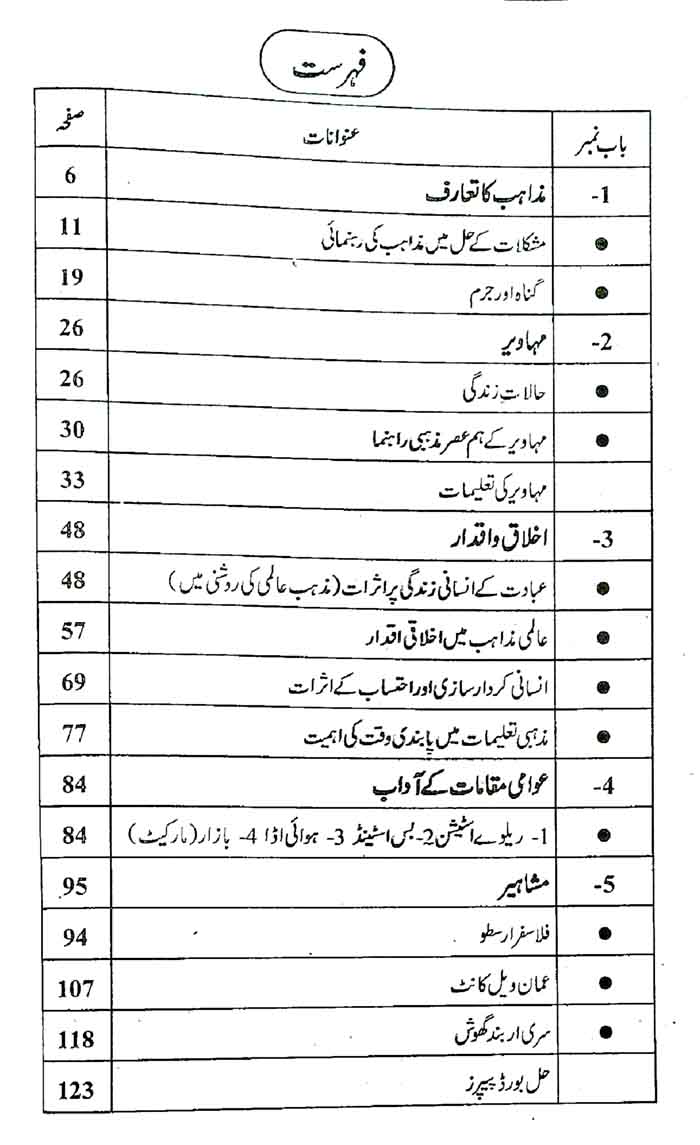 فہرست
باب نمبر عنوانات صفحہ
1- مذاہب کا تعارف 6
● مشکلات کے حل میں مذاہب کی رہنمائی 11
● گناہ اور جرم 19
2- مہاویر 26
● حالاتِ زندگی 26
● مہاویر کے ہم عصر مذہبی راہنما 30
مہاویر کی تعلیمات 33
3- اخلاق و اقدار 48
● عبادت کے انسانی زندگی پر اثرات (مذہب عالمی کی روشنی میں) 48
● عالمی مذاہب میں اخلاقی اقدار 57
● انسانی کردار سازی اور احتساب کے اثرات 69
● مذہبی تعلیمات میں پابندی وقت کی اہمیت 77
4- عوامی مقامات کے آداب 84
● 1- ریلوے اسٹیشن 2- بس اسٹینڈ 3- ہوائی اڈا 4- بازار (مارکیٹ) 84
5- مشاہیر 95
● فلاسفر ارسطو 94
● عمان ویل کانٹ 107
● سری اربند گھوش 118
حل بورڈ پیپرز 123